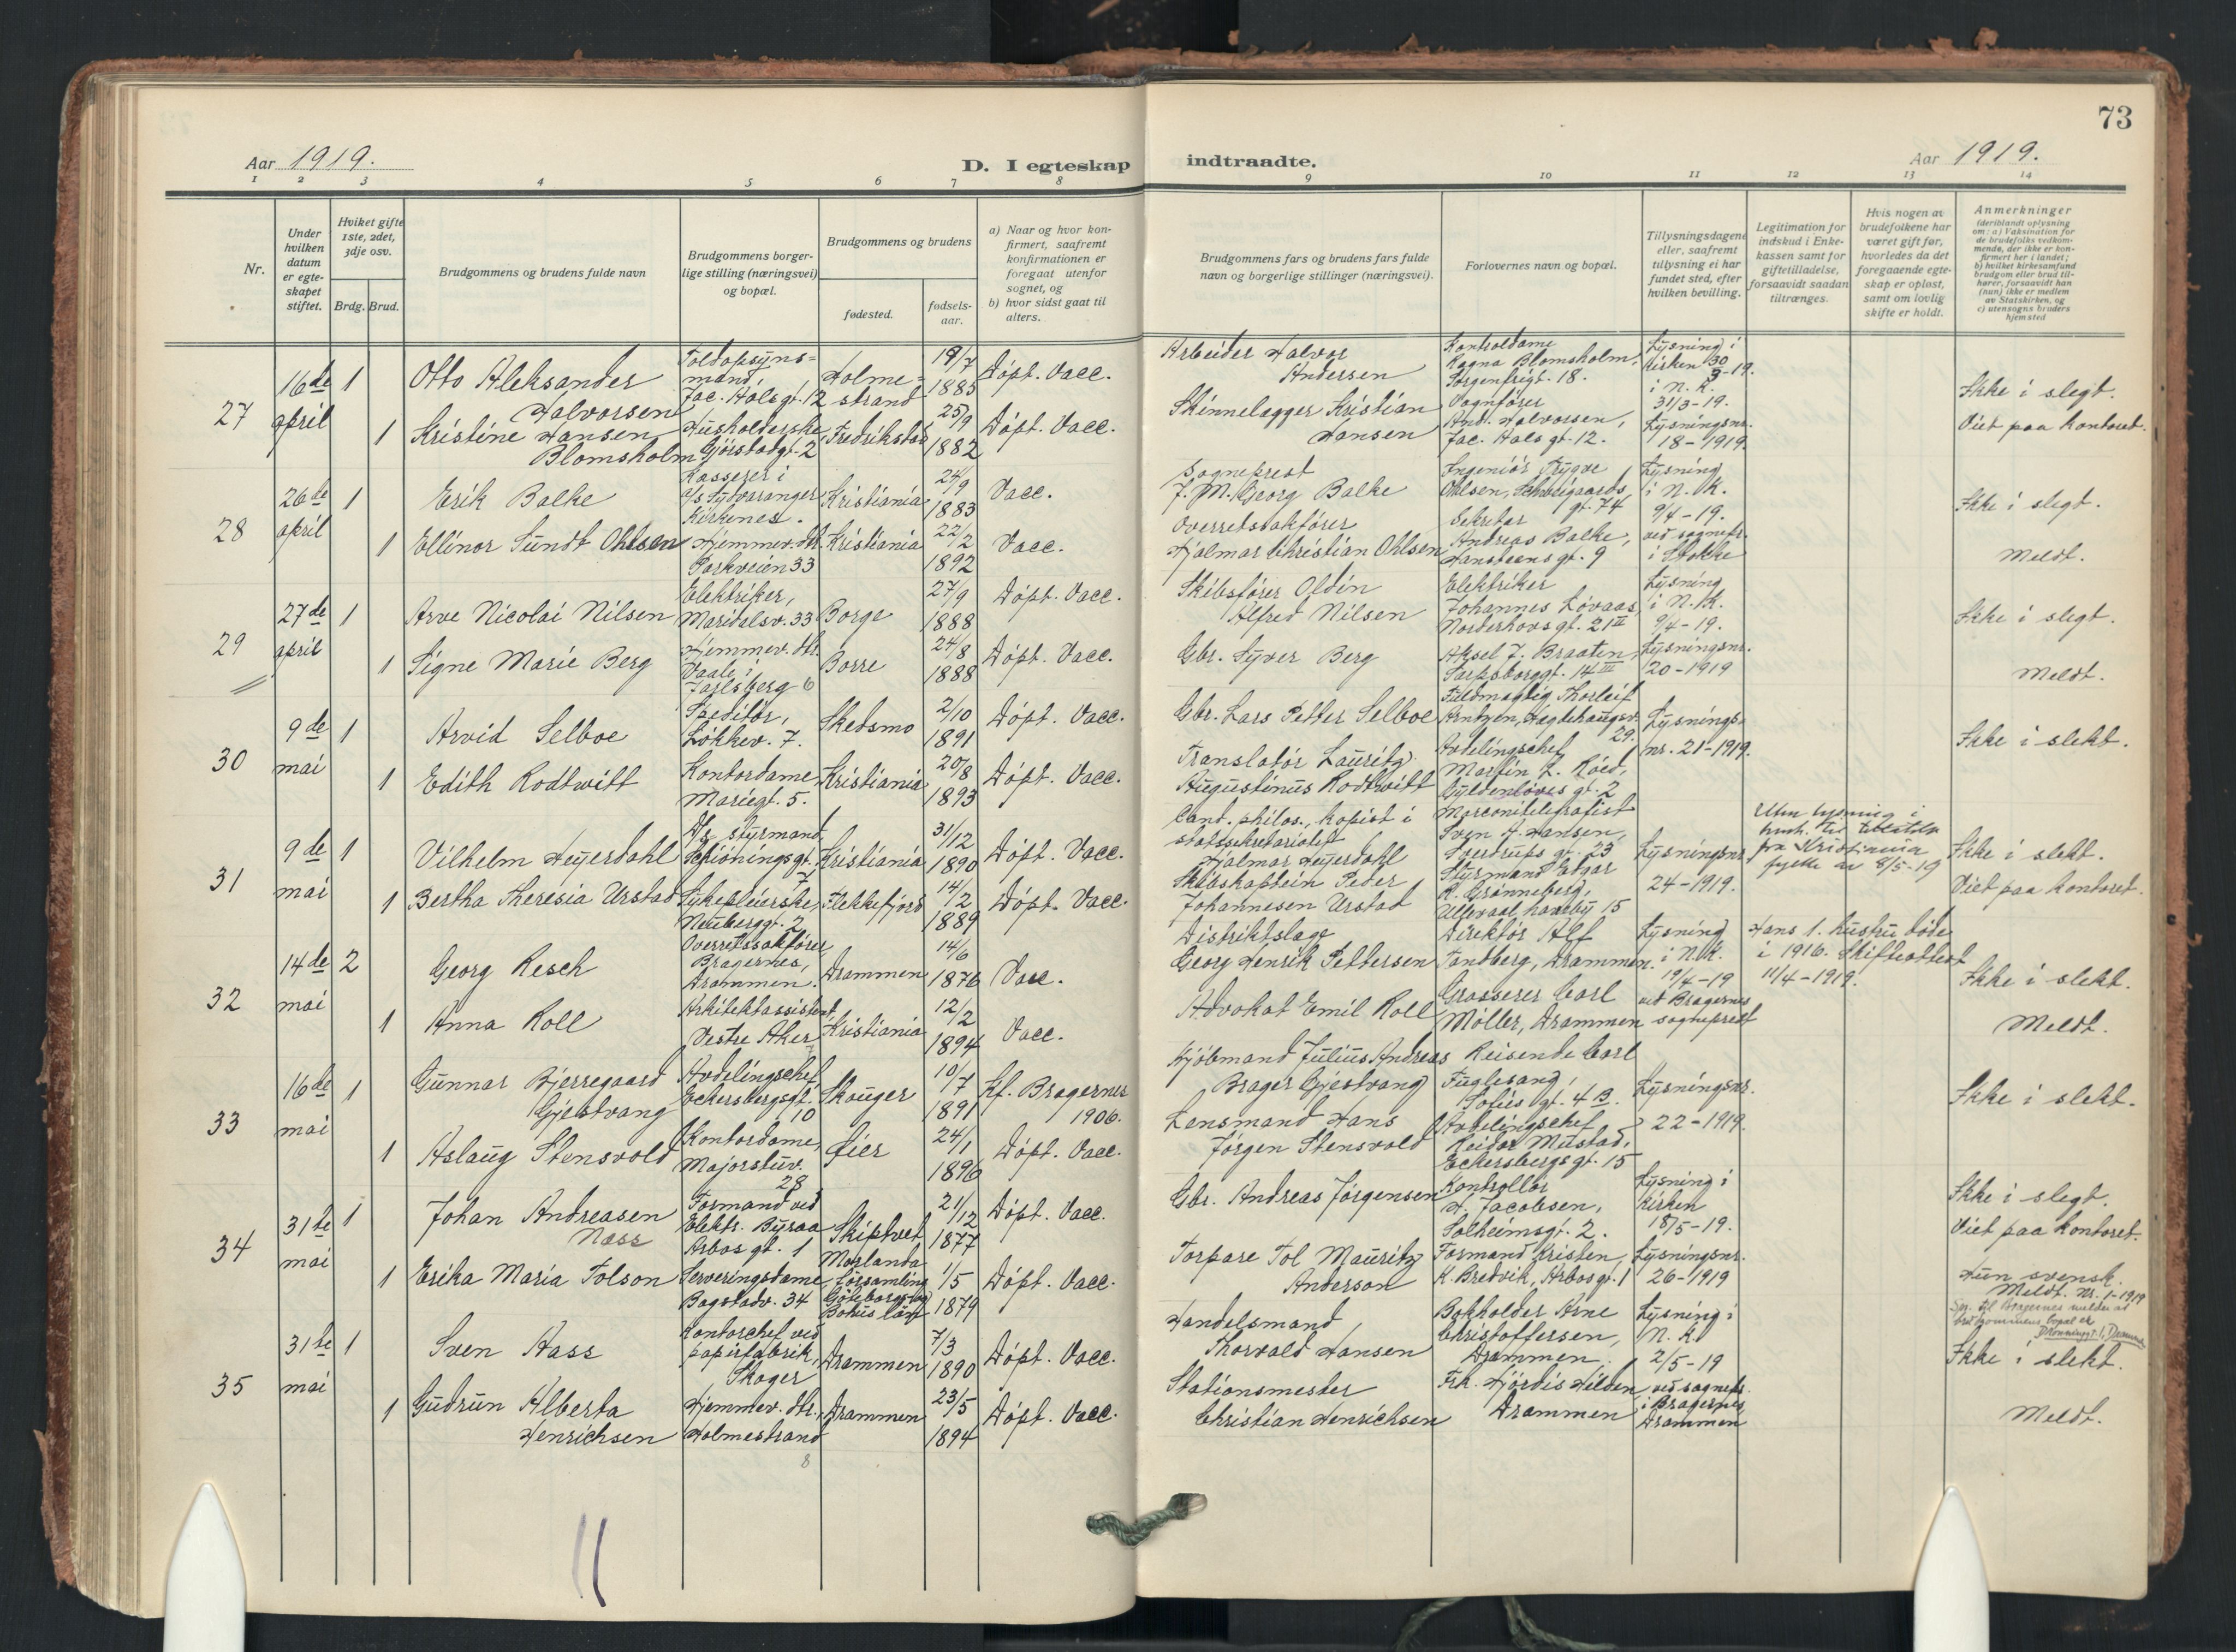 73
Aar 1919.
D. I egteskap indtraadte.
Aar 1919.
1 2 3 4 5 6 7 8 9 10 11 12 13 14
Nr.
Under hvilken datum er egteskapet stiftet.
Hviket gifte 1ste, 2det, 3dje osv.
Brdg. Brud.
Brudgommens og brudens fulde navn
Brudgommens borgerlige stilling (næringsvei) og bopæl.
Brudgommens og brudens
fødested.
fødselsaar.
a) Naar og hvor konfirmert, saafremt konfirmationen er foregaat utenfor sognet, og
b) hvor sidst gaat til alters.
Brudgommens fars og brudens fars fulde navn og borgerlige stillinger (næringsvei).
Forlovernes navn og bopæl.
Tillysningsdagene eller, saafremt tillysning ei har fundet sted, efter hvilken bevilling.
Legitimation for indskud i Enkekassen samt for giftetilladelse, forsaavidt saadan tiltrænges.
Hvis nogen av brudefolkene har været gift før, hvorledes da det foregaaende egteskap er opløst, samt om lovlig skifte er holdt.
Anmerkninger
(deriblandt oplysning om: a) Vaksination for de brudefolks vedkommende, der ikke er konfirmert her i landet; b) hvilket kirkesamfund brudgom eller brud tilhører, forsaavidt han (hun) ikke er medlem av Statskirken, og c) utensogns bruders hjemsted
27
16de april
1
Otto Aleksander Halvorsen
Toldopsynsmand, Jac. Halsgt. 12
Holmestrand
19/7 1885
Døpt. Vacc.
Arbeider Halvor Andersen
Kontordame Ragna Blomsholm, Sorgenfrigt. 18.
Lysning i kirken 30/3-19. i N. K. 31/3-19.
Ikke i slegt.
1
Kristine Hansen Blomsholm
Husholderske, Gjørstadgt. 2
Fredrikstad
25/9 1882
Døpt. Vacc.
Skinnelægger Kristian Hansen
Vognfører And. Halvorsen, Jac. Hals gt. 12.
Lysningsnr. 18-1919.
Viet paa kontoret.
28
26de april
1
Erik Balke
Kasserer i a/s Sydvaranger Kirkenes.
Kristiania
24/9 1883
Vacc.
Sogneprest J. M. Georg Balke
Ingeniør Trygve Ohlsen, Schweigaards gt. 74
Lysning i N. K. 9/4-19.
Ikke i slegt.
1
Ellinor Sundt Ohlsen
Hjemmev. dtr. Parkveien 33
Kristiania
22/2 1892
Vacc.
Overretssakfører Hjalmar Christian Ohlsen
Sekretær Andreas Balke, Hansteens gt. 9
ved sognepr. i Stokke
Meldt.
29
27de april
1
Arve Nicolai Nilsen
Elektriker, Maridalsv. 33
Borge
27/9 1888
Døpt. Vacc.
Skibsfører Oldin Alfred Nilsen
Elektriker Johannes Lovaas, Norderhovs gt. 21 II
Lysning i N. K. 9/4-19.
Ikke i slegt.
1
Signe Marie Berg
Hjemmev. dtr. Vaale i Jarlsberg 6
Borre
24/8 1888
Døpt. Vacc.
Gbr. Syver Berg
Aksel J. Braaten, Sarpsborggt. 14 III
Lysningsnr. 20-1919
Meldt.
30
9de mai
1
Arvid Selboe
Speditør, Løkkev. 7.
Skedsmo
2/10 1891
Døpt. Vacc.
Gbr. Lars Petter Selboe
Fuldmægtig Thorleif Arntzen, Hegdehaugsv. 29.
Lysningsnr. 21-1919.
Ikke i slekt.
1
Edith Rodtwitt
Kontordame Mariegt. 5.
Kristiania
20/8 1893
Døpt. Vacc.
Translatør Lauritz Augustinus Rodtwitt
Avdelingschef Martin L. Røed, Gyldenløves gt. 2
31
9de mai
1
Vilhelm Heyerdahl
styrmand, Schiønningsgt. 7
Kristiania
31/12 1890
Døpt. Vacc.
Cand. philos., kopist i statssekretariatet Hjalmar Heyerdahl
Marconitelegrafist Sven A. Hansen, Sverdrups gt. 23
Lysningsnr. 24-1919.
fra Kristiania fylke av 8/5-19
Ikke i slekt.
1
Bertha Theresia Urstad
Sykepleierske, Neuberggt. 2
Flekkefjord
14/2 1889
Døpt. Vacc.
Skibskaptein Peder Johannesen Urstad
Styrmand Edgar R. Grønneberg, Ullevaal haveby 15
Viet paa kontoret.
32
14de mai
2
Georg Resch
Overretssakfører Bragernes, Drammen.
Drammen
14/6 1876
Vacc.
Distriktslæge Georg Henrik Pettersen
Direktør Alf Tandberg, Drammen.
Lysning i N. K. 19/4-19
Hans 1. hustru døde i 1916. Skifteattest 11/4-1919.
Ikke i slekt.
1
Anna Roll
Arkitektassistent, Vestre Aker
Kristiania
12/2 1894
Vacc.
Advokat Emil Roll
Grosserer Carl Møller, Drammen
ved Bragernes sogneprest
Meldt.
33
16de mai
1
Gunnar Bjerregaard Gjestvang
Avdelingschef, Eckersbergsgt. 10
Skouger
10/7 1891
Kf. Bragernes 1906.
Kjøbmand Julius Andreas Brager Gjestvang
Reisende Carl Fuglesang, Sofies gt. 4 B.
Lysningsnr. 22-1919.
Ikke i slekt.
1
Aslaug Stensvold
Kontordame, Majorstuv. 28
Øier
24/1 1896
Døpt. Vacc.
Lensmand Hans Jørgen Stensvold
Avdelingschef Reidar Mustad, Eckersbergsgt. 15
34
31te mai
1
Johan Andreasen Næss
Formand ved Elektr. Byraa Arbos gt. 1
Skiptvet
21/12 1877
Døpt. Vacc.
Gbr. Andreas Jørgensen
Kontrollør H. Jacobsen, Solheimsgt. 2.
Lysning i kirken 18/5-19.
Ikke i slegt.
Viet paa kontoret.
1
Erika Maria Tolson
Serveringsdame Bogstadv. 34
Morlanda församling Göteborgs og Bohus län
1/5 1879
Døpt. Vacc.
Torpare Tol Mauritz Anderson
Formand Kristen K. Bredvik, Arbosgt. 1
Lysningsnr. 26-1919
Hun svensk.
Meldt. nr. 1-1919
35
31te mai
1
Sven Hass
Kontorchef ved papirfabrik, Skoger
Drammen
7/3 1890
Døpt. Vacc.
Handelsmand Thorvald Hansen
Bokholder Arne Christoffersen, Drammen.
Lysning i N. K. 2/5-19
Spr. til Bragernes melder at brudgommens bopæl er
Ikke i slekt.
1
Gudrun Alberta Henrichsen
Hjemmev. dtr., Holmestrand
8
Drammen
23/5 1894
Døpt. Vacc.
Stationsmester Christian Henrichsen
Frk. Hjørdis Hilden, Drammen
ved sognepr. i Bragernes Drammen
Meldt.